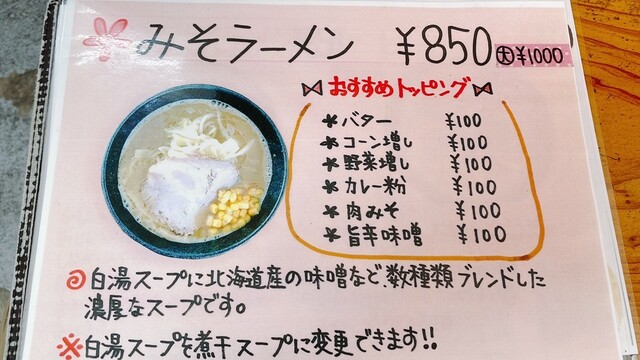 みそラーメン ¥850 大¥1000
おすすめトッピング
*バター ¥100
*コーン増し ¥100
*野菜増し ¥100
*カレー粉 ¥100
*肉みそ ¥100
*旨辛味噌 ¥100
白湯スープに北海道産の味噌など、数種類ブレンドした
濃厚なスープです。
※白湯スープを煮干スープに変更できます!!